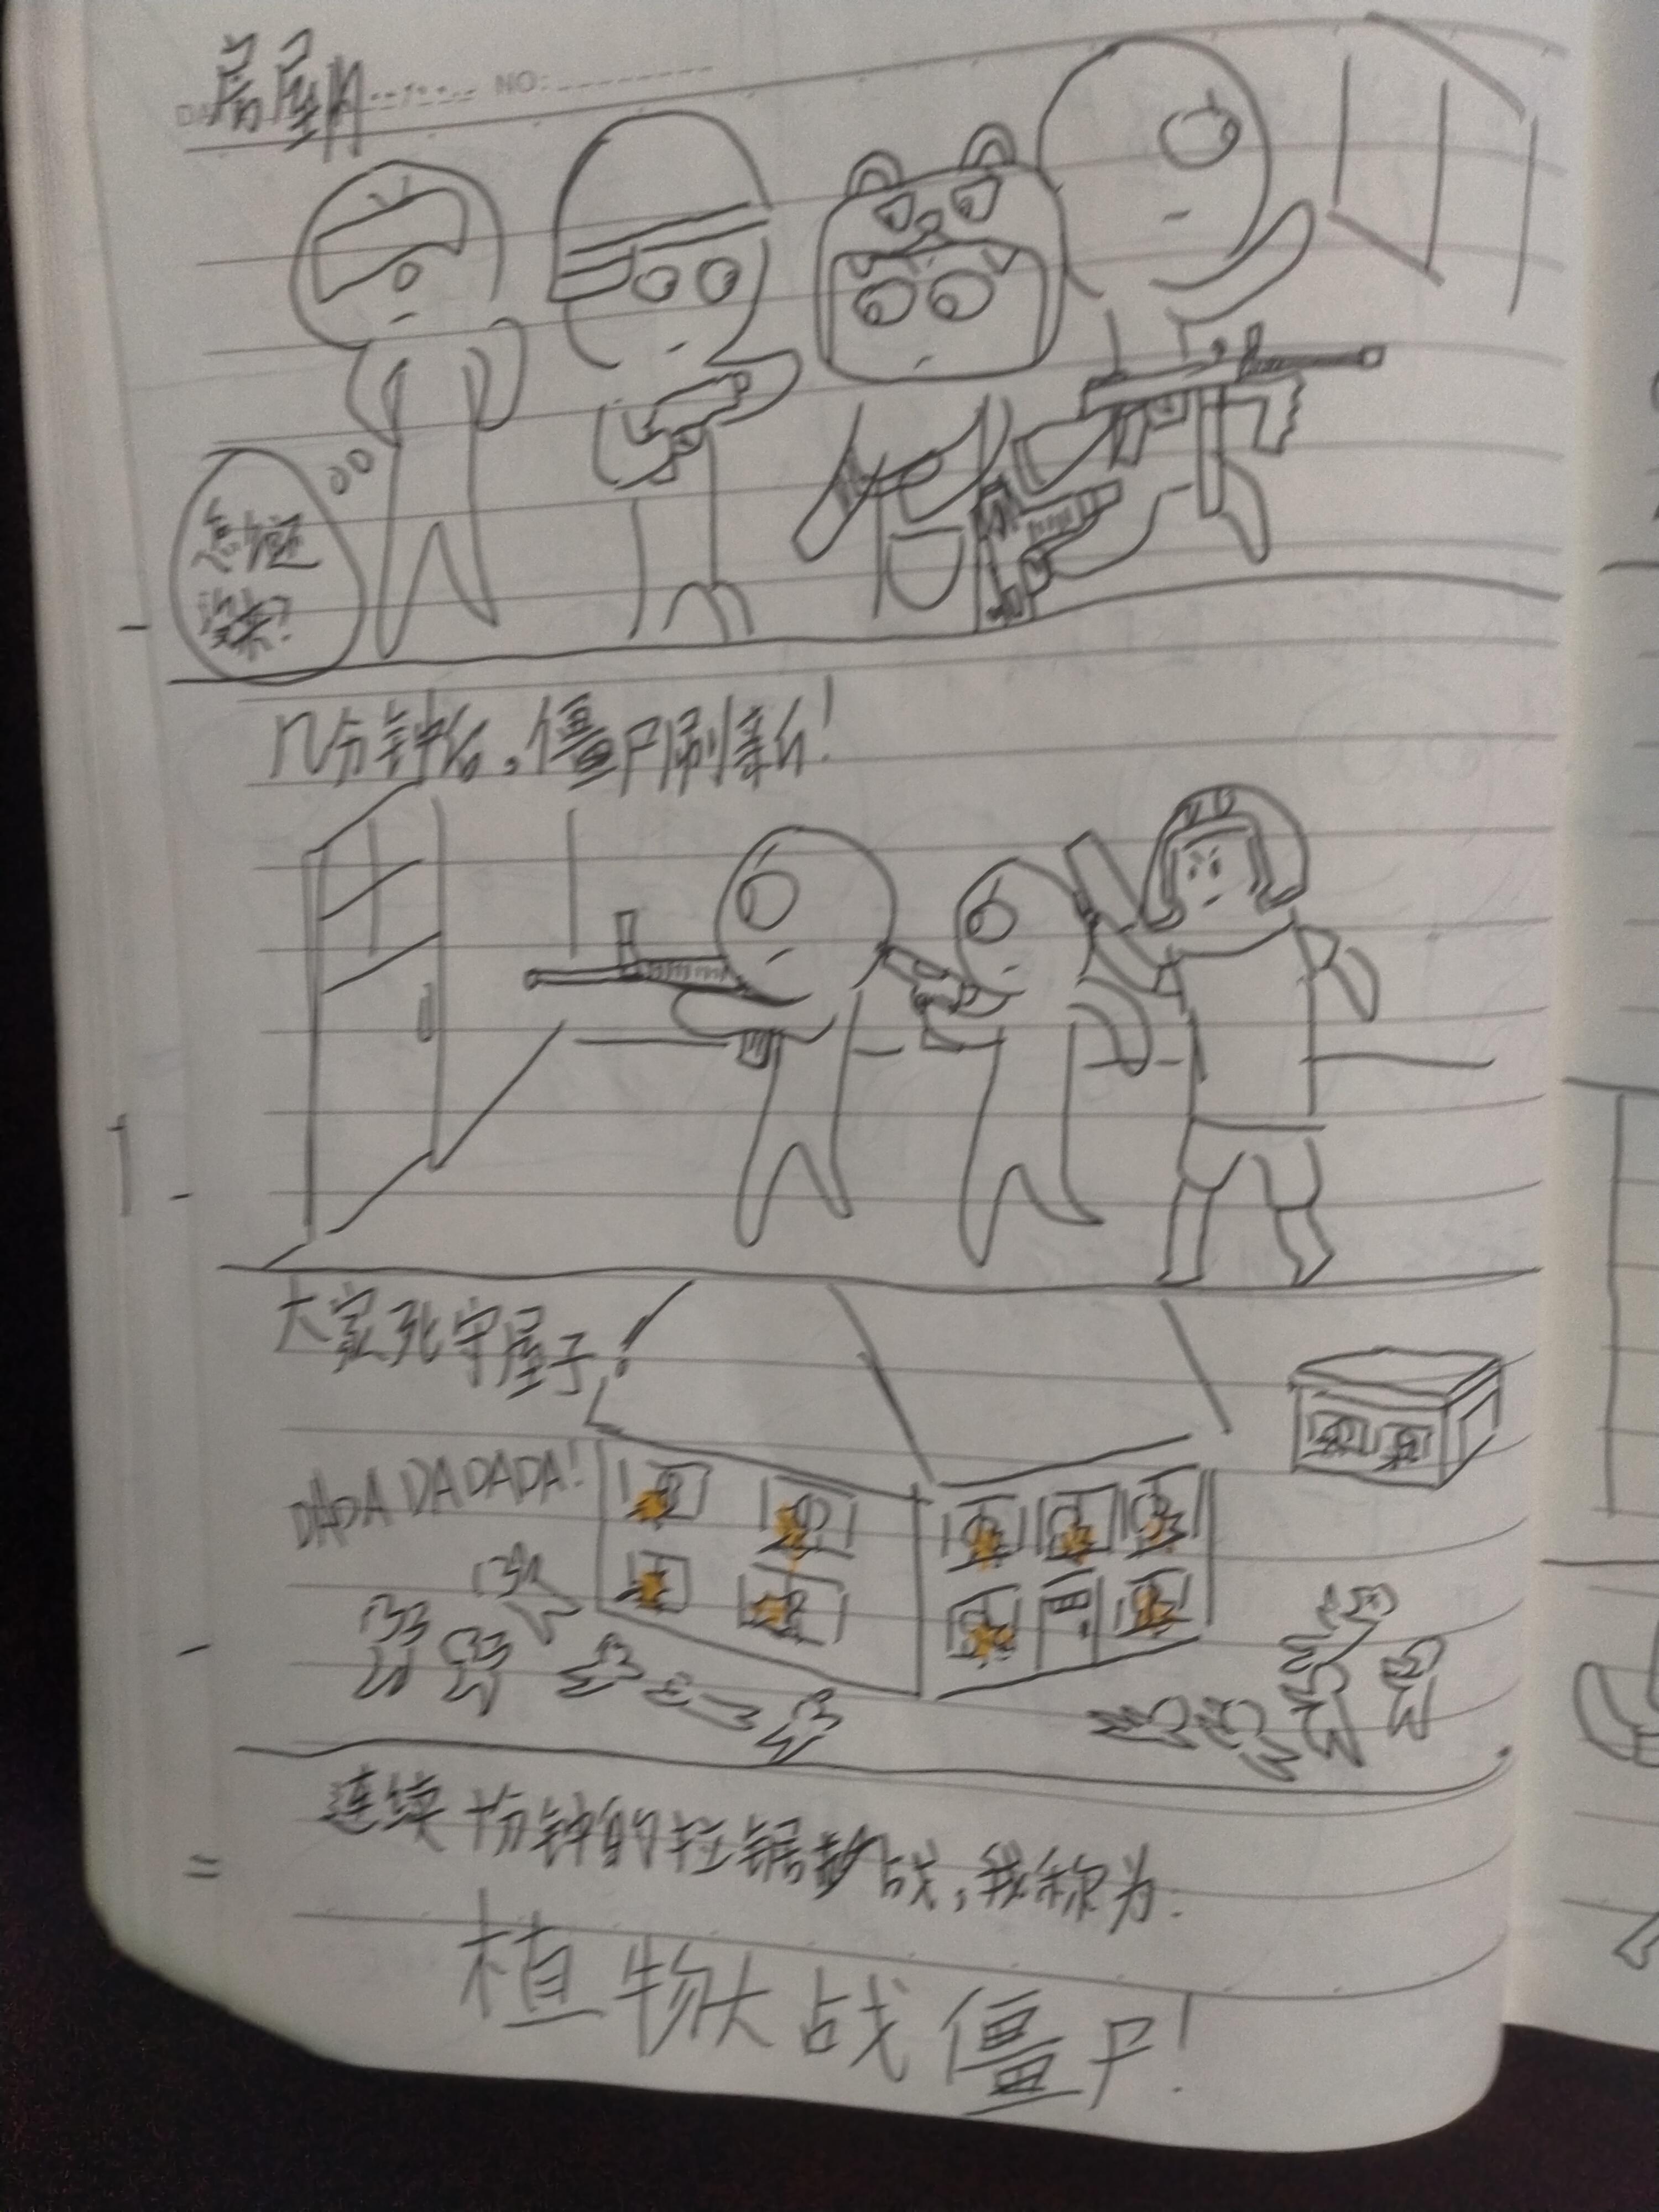 房屋内
NO:
怎么还
没来?
几分钟后，僵尸刷新!
大家死守屋子!
DADADADADA!
连续十分钟的拉锯战，我称为:
植物大战僵尸!